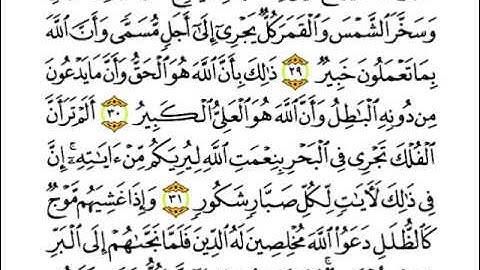 وَسَخَّرَ ٱلشَّمۡسَ وَٱلۡقَمَرَ كُلّٞ يَجۡرِيٓ إِلَىٰٓ أَجَلٖ مُّسَمّٗى وَأَنَّ ٱللَّهَ
بِمَا تَعۡمَلُونَ خَبِيرٞ ٢٩ ذَٰلِكَ بِأَنَّ ٱللَّهَ هُوَ ٱلۡحَقُّ وَأَنَّ مَا يَدۡعُونَ
مِن دُونِهِ ٱلۡبَٰطِلُ وَأَنَّ ٱللَّهَ هُوَ ٱلۡعَلِيُّ ٱلۡكَبِيرُ ٣٠ أَلَمۡ تَرَ أَنَّ
ٱلۡفُلۡكَ تَجۡرِي فِي ٱلۡبَحۡرِ بِنِعۡمَتِ ٱللَّهِ لِيُرِيَكُم مِّنۡ ءَايَٰتِهِۦٓۚ إِنَّ
فِي ذَٰلِكَ لَأٓيَٰتٖ لِّكُلِّ صَبَّارٖ شَكُورٖ ٣١ وَإِذَا غَشِيَهُم مَّوۡجٞ
كَٱلظُّلَلِ دَعَوُاْ ٱللَّهَ مُخۡلِصِينَ لَهُ ٱلدِّينَ فَلَمَّا نَجَّىٰهُمۡ إِلَى ٱلۡبَرِّ